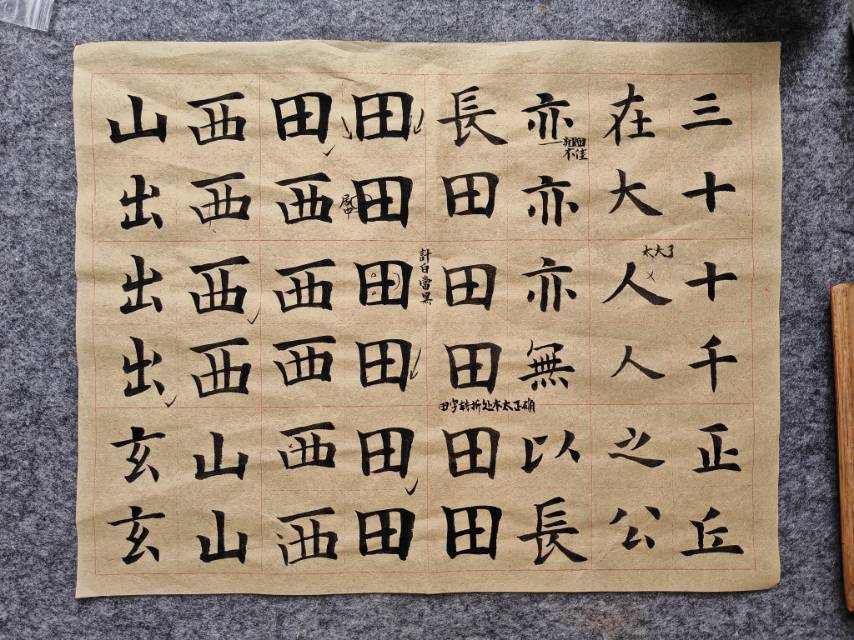 三十十千正丘
在大人人之公
太大了
亦亦亦無以長
粗细
不佳
長田田田田田
田字转折处不太正确
計白當黑
田田田田田田
居中
田西西西西西
西西西西山山
山出出出玄玄